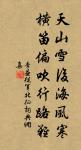 天山雪後海風寒
橫笛偏吹行路難
李益從軍北征詩